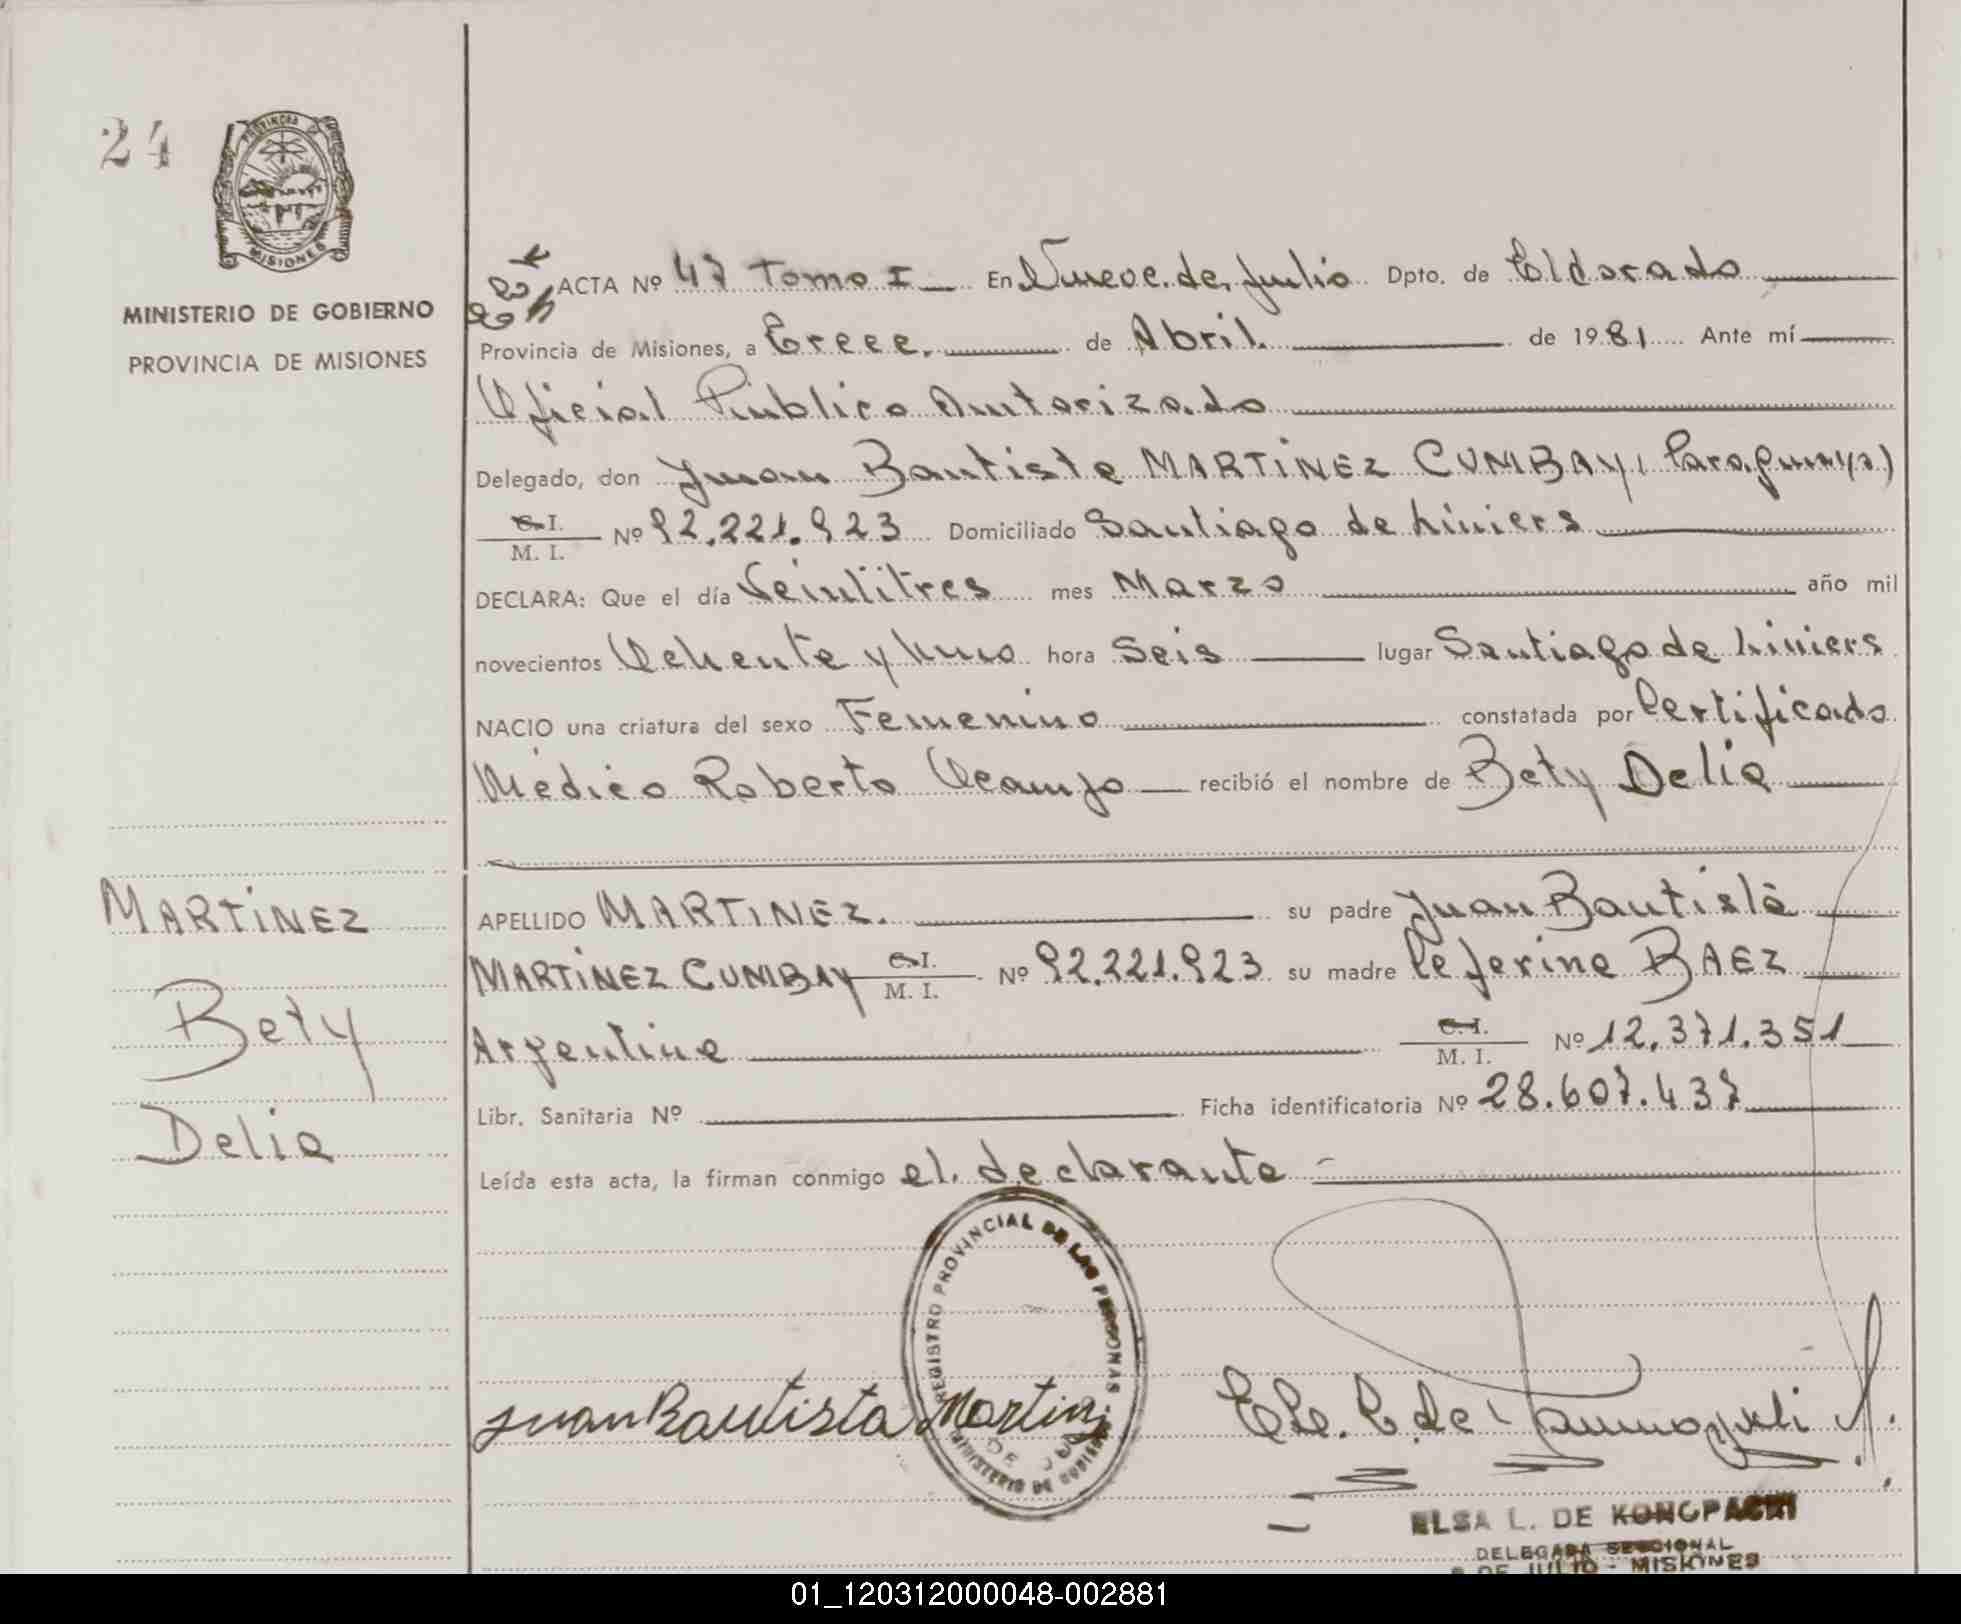 24
PROVINCIA DE
MISIONES
MINISTERIO DE GOBIERNO
PROVINCIA DE MISIONES
ACTA Nº 47 Tomo I En Nueve de Julio Dpto. de Eldorado
Provincia de Misiones, a Trece de Abril de 1981 Ante mí
Oficial Público Autorizado
Delegado, don Juan Bautista MARTINEZ CUMBAY, Paraguayo)
C. I. / M. I. Nº 92.221.923 Domiciliado Santiago de Liniers
DECLARA: Que el día Veintitres mes Marzo año mil
novecientos Ochenta y Uno hora Seis lugar Santiago de Liniers
NACIO una criatura del sexo Femenino constatada por Certificado
Médico Roberto Ocampo recibió el nombre de Bety Delia
MARTINEZ
Bety
Delia
APELLIDO MARTINEZ. su padre Juan Bautista
MARTINEZ CUMBAY C. I. / M. I. Nº 92.221.923 su madre Ceferina BAEZ
Argentina C. I. / M. I. Nº 12.371.351
Libr. Sanitaria Nº Ficha identificatoria Nº 28.607.437
Leída esta acta, la firman conmigo el declarante
REGISTRO PROVINCIAL DE LAS PERSONAS
MINISTERIO DE GOBIERNO
Juan Bautista Martinez
ELSA L. DE KONOPACKI
DELEGADA SECCIONAL
9 DE JULIO - MISIONES
01_120312000048-002881